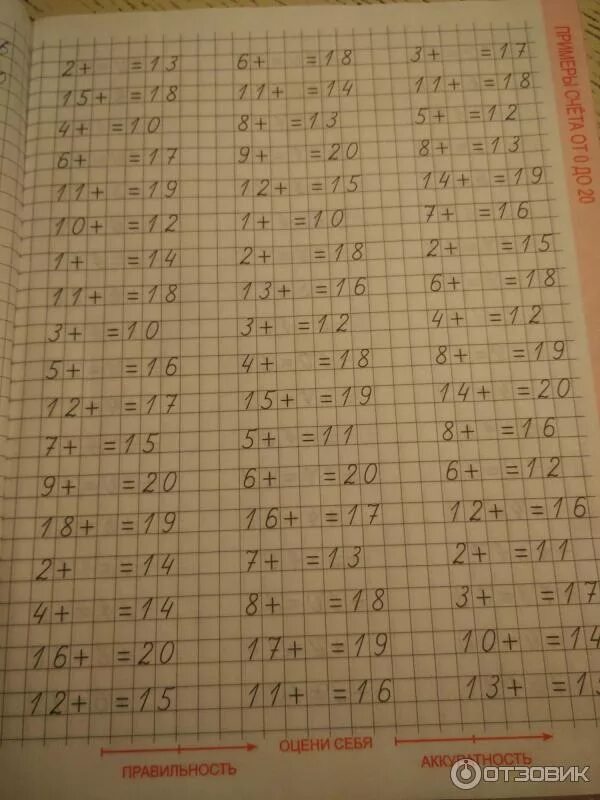 ПРИМЕРЫ СЧЁТА ОТ 0 ДО 20
2+ =13 6+ =18 3+ =17
15+ =18 11+ =14 11+ =18
4+ =10 8+ =13 5+ =12
6+ =17 9+ =20 8+ =13
11+ =19 12+ =15 14+ =19
10+ =12 1+ =10 7+ =16
1+ =14 2+ =18 2+ =15
11+ =18 13+ =16 6+ =18
3+ =10 3+ =12 4+ =12
5+ =16 4+ =18 8+ =19
12+ =17 15+ =19 14+ =20
7+ =15 5+ =11 8+ =16
9+ =20 6+ =20 6+ =12
18+ =19 16+ =17 12+ =16
2+ =14 7+ =13 2+ =11
4+ =14 8+ =18 3+ =17
16+ =20 17+ =19 10+ =14
12+ =15 11+ =16 13+
ПРАВИЛЬНОСТЬ ОЦЕНИ СЕБЯ АККУРАТНОСТЬ
ОТЗОВИК